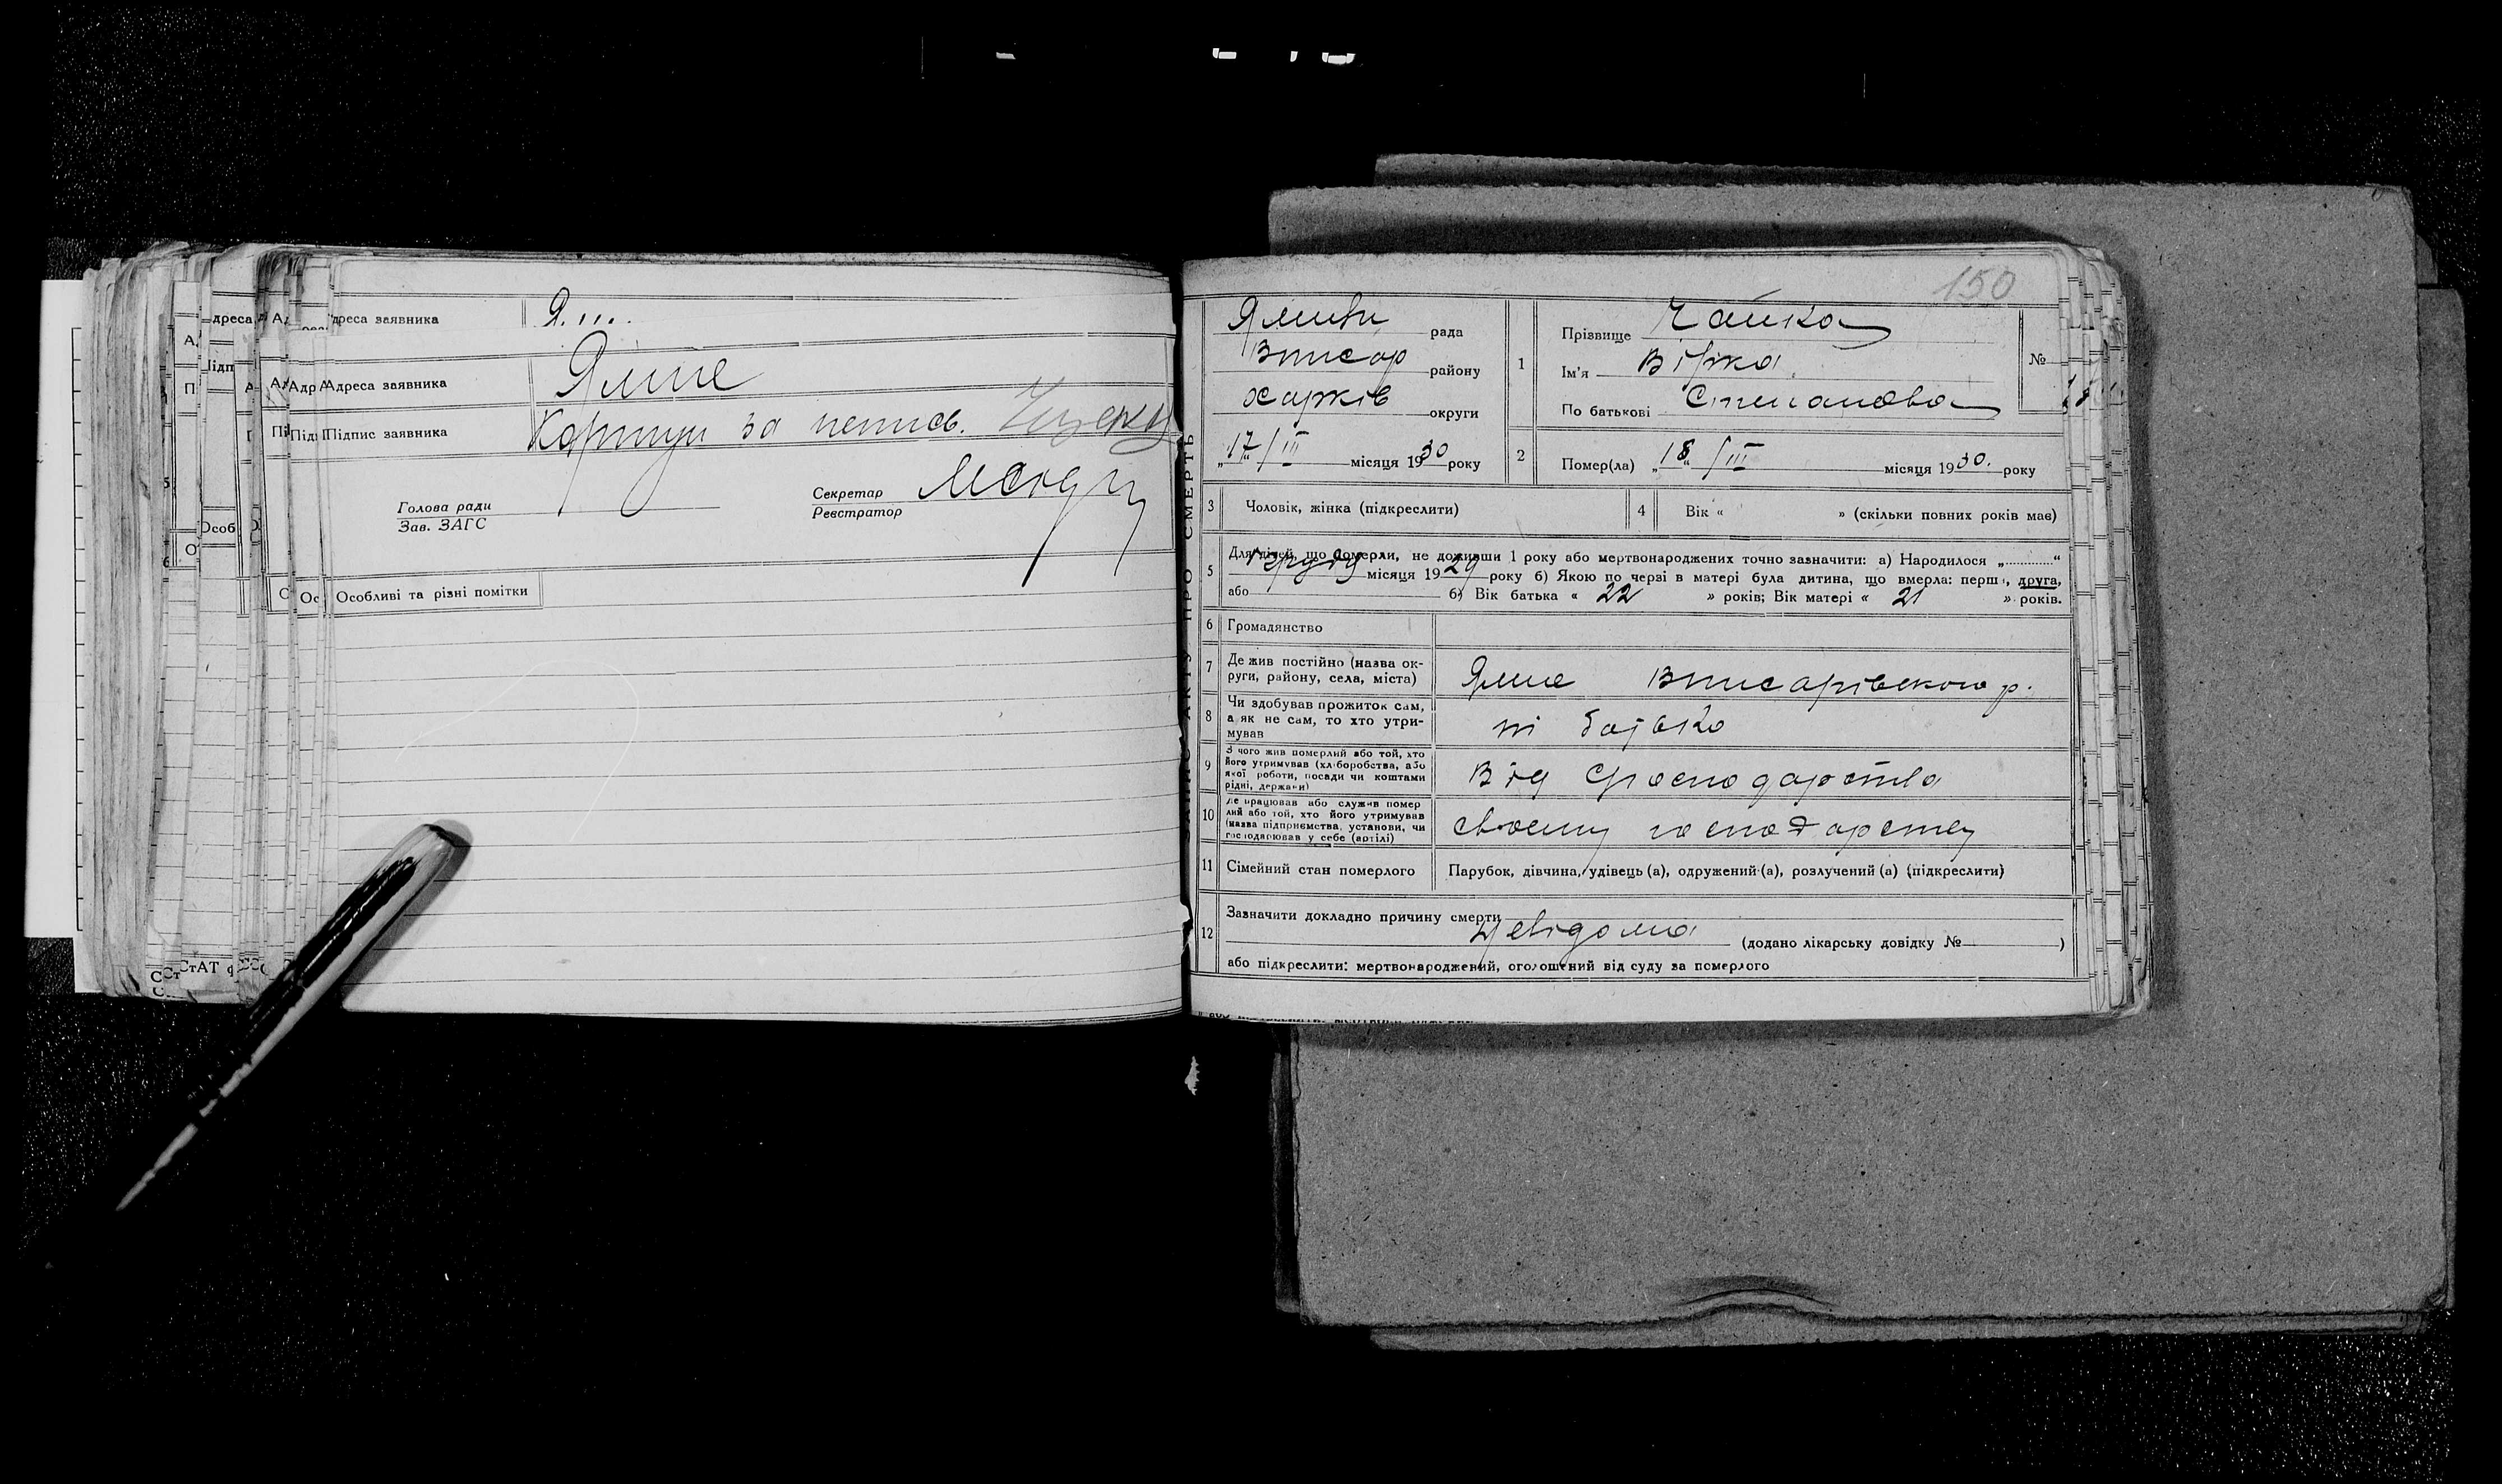 Адреса заявника
Ямне
Підпис заявника
за непись.
Голова ради
Зав. ЗАГС
Секретар
Реєстратор
Особливі та різні помітки
150
рада
району
Харків округи
„17“/III місяця 1930 року
1
Прізвище Чайка
Ім'я Вірка
По батькові Степанова
№
2
Помер(ла) „18“/III місяця 1930. року
3 Чоловік, жінка (підкреслити)
4 Вік « » (скільки повних років має)
5 Для дітей, що померли, не доживши 1 року або мертвонароджених точно зазначити: а) Народилося „............“
грудня місяця 1929 року б) Якою по черзі в матері була дитина, що вмерла: перша, друга,
або б) Вік батька « 22 » років; Вік матері « 21 » років.
6 Громадянство
7 Де жив постійно (назва ок-
руги, району, села, міста)
Ямне Вписарівского р.
8 Чи здобував прожиток сам,
а як не сам, то хто утри-
мував
ні батько
9 З чого жив померлий або той, хто
його утримував (хліборобства, або
якої роботи, посади чи коштами
рідні, держави)
Від Господарства
10 Де працював або служив помер
лий або той, хто його утримував
(назва підприємства, установи, чи
господарював у себе (артілі)
своєму господарству
11 Сімейний стан померлого
Парубок, дівчина, удівець (а), одружений (а), розлучений (а) (підкреслити)
12 Зазначити докладно причину смерти
Невідома (додано лікарську довідку № )
або підкреслити: мертвонароджений, оголошений від суду за померлого